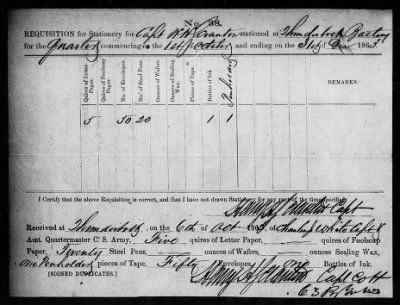 No 38.
REQUISITION for Stationery for Capt stationed at Thunderbolt Battery
for the Quarter commencing on the 1st October and ending on the 31st Dec 1863.
Quires of Letter Paper.
Quires of Foolscap Paper.
No. of Envelopes.
No. of Steel Pens.
Ounces of Wafers.
Ounces of Sealing Wax.
Pieces of Tape.
Bottles of Ink
REMARKS.
5 50 20 1 1
I Certify that the above Requisition is correct, and that I have not drawn Stationery for any part of the time specified.
Capt
Received at Thunderbolt on the 6th of Oct 1863, of Charles White Capt &
Asst Quartermaster C. S. Army, Five quires of Letter Paper, quires of Foolscap
Paper, Twenty Steel Pens, ounces of Wafers, ounces Sealing Wax,
One Penholder pieces of Tape, Fifty Envelopes, Bottles of Ink.
(SIGNED DUPLICATES.) Capt Co H
63 Ga